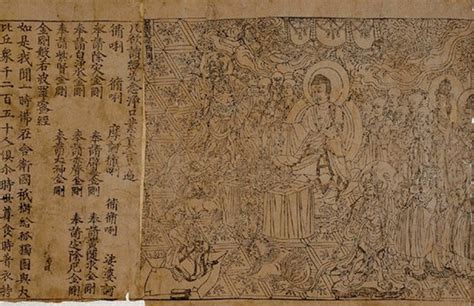 凡欲讀經先念淨口業真言一遍
脩唎 脩唎 摩訶脩唎 脩脩唎 娑婆訶
奉請除灾金剛 奉請辟毒金剛
奉請黃隨求金剛 奉請白淨水金剛
奉請赤聲金剛 奉請定除厄金剛
奉請紫賢金剛 奉請大神金剛
金剛般若波羅蜜經
如是我聞一時佛在舍衛國祇樹給孤獨園與大
比丘眾千二百五十人俱尒時世尊食時著衣持